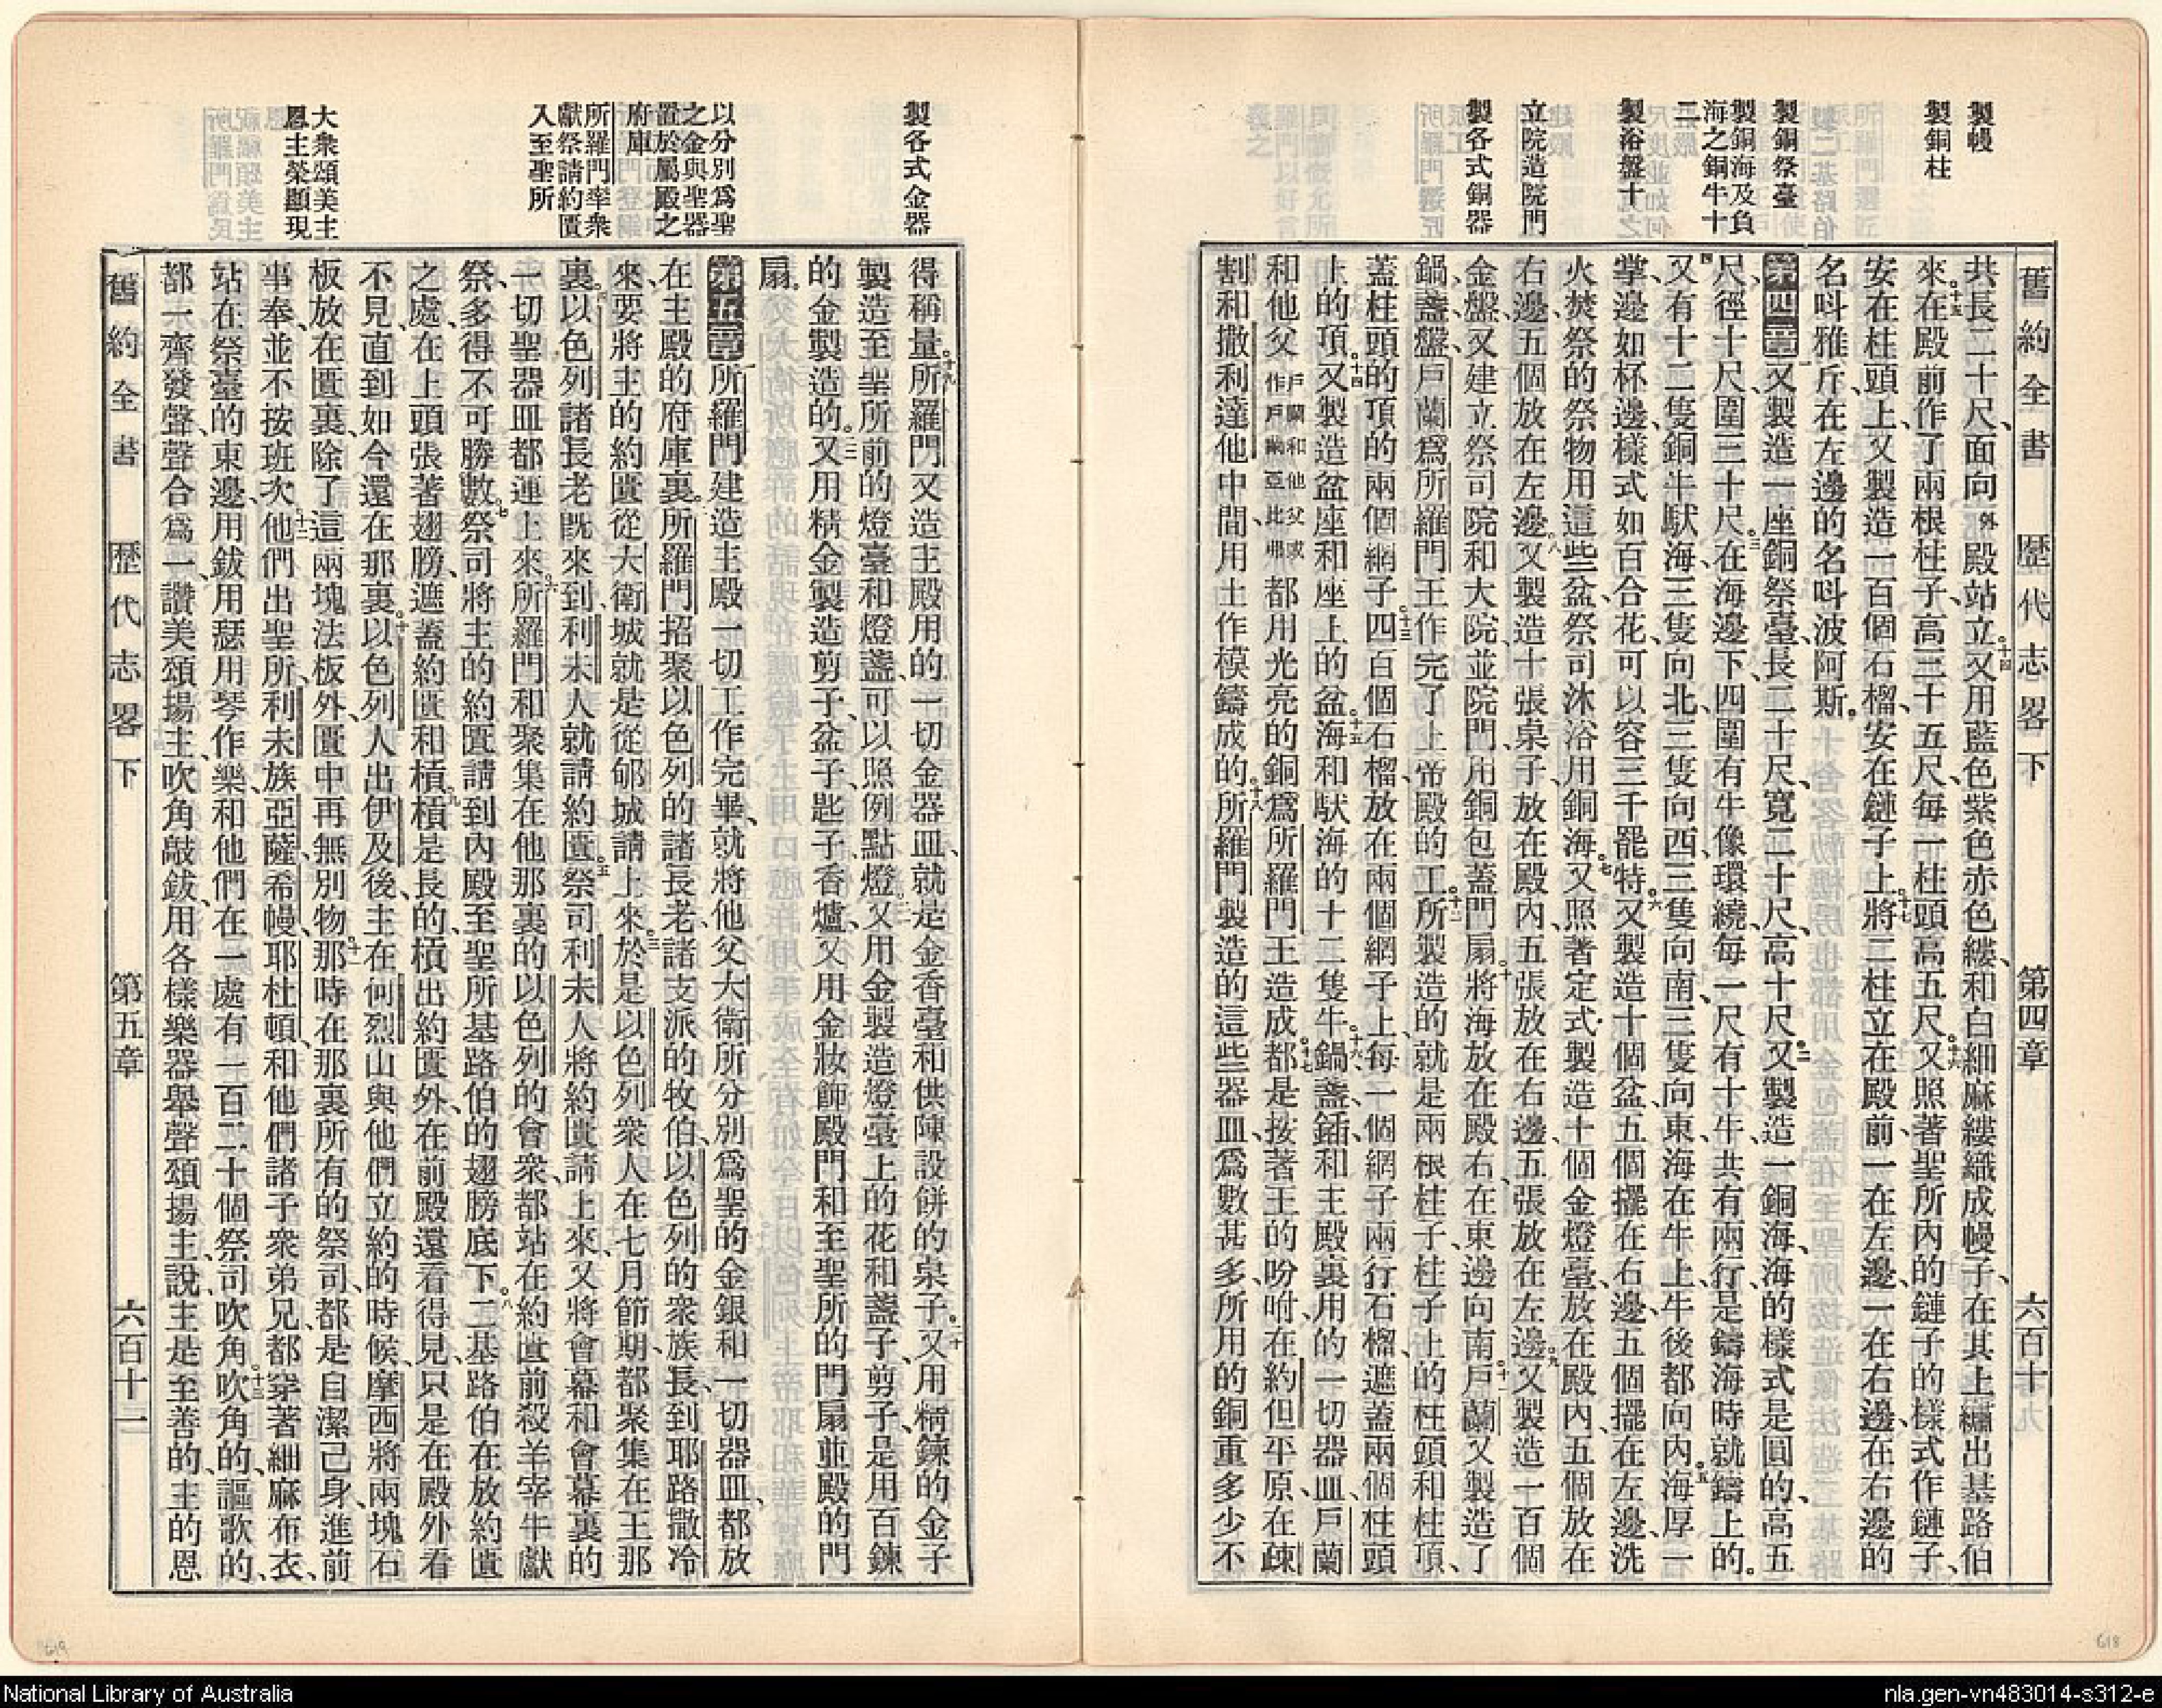 舊約全書　歷代志畧下　第四章　六百十
製幔
製銅柱
製銅祭臺
製銅海及負
海之銅牛十
二
製浴盤十
立院造院門
製各式銅器
共長二十尺、面向外殿站立。十四又用藍色紫色赤色縷、和白細麻縷織成幔子、在其上繡出基路伯
來。十五在殿前作了兩根柱子、高三十五尺、每一柱頭高五尺。十六又照著聖所內的鏈子的樣式作鏈子、
安在柱頭上、又製造一百個石榴、安在鏈子上。十七將二柱立在殿前、一在左邊、一在右邊、在右邊的
名呌雅斤、在左邊的名呌波阿斯。
第四章一又製造一座銅祭臺、長二十尺、寬二十尺、高十尺。二又製造一銅海、海的樣式是圓的、高五
尺、徑十尺、圍三十尺。三在海邊下、四圍有牛像環繞、每一尺有十牛、共有兩行、是鑄海時就鑄上的。
四又有十二隻銅牛馱海、三隻向北、三隻向西、三隻向南、三隻向東、海在牛上、牛後都向內。五海厚一
掌、邊如杯邊、樣式如百合花、可以容三千罷特。六又製造十個盆、五個擺在右邊、五個擺在左邊、洗
火焚祭的祭物用這些盆、祭司沐浴用銅海。七又照著定式製造十個金燈臺、放在殿內、五個放在
右邊、五個放在左邊。八又製造十張桌子、放在殿內、五張放在右邊、五張放在左邊。九又製造一百個
金盤、又建立祭司院和大院、並院門、用銅包蓋門扇。十將海放在殿右、在東邊向南。十一戶蘭又製造了
鍋、盞、盤、戶蘭爲所羅門王作完了上帝殿的工。十二所製造的就是兩根柱子、柱子上的柱頭和柱頂、
蓋柱頭的頂的兩個網子。十三四百個石榴、放在兩個網子上、每一個網子兩行石榴、遮蓋兩個柱頭
上的頂。十四又製造盆座和座上的盆。十五海和馱海的十二隻牛。十六鍋、盞、鍤、和主殿裏用的一切器皿、戶蘭
和他父戶蘭和他父或作戶蘭亞比弗都用光亮的銅爲所羅門王造成。十七都是按著王的吩咐、在約但平原、在疎
割和撒利達他中間、用土作模鑄成的。十八所羅門製造的這些器皿、爲數甚多、所用的銅重多少不
製各式金器
以分別爲聖
之金與聖器
置於屬殿之
府庫
所羅門率衆
獻祭請約匱
入至聖所
大衆頌美主
恩主榮顯現
得稱量。十九所羅門又造主殿用的一切金器皿、就是金香臺和供陳設餅的桌子。二十又用精鍊的金子
製造至聖所前的燈臺和燈盞、可以照例點燈。二一又用金製造燈臺上的花和盞子、剪子、是用百鍊
的金製造的。二二又用精金製造剪子、盆子、匙子、香爐、又用金妝飾殿門和至聖所的門扇並殿的門
扇。
第五章一所羅門建造主殿一切工作完畢、就將他父大衛所分別爲聖的金銀和一切器皿、都放
在主殿的府庫裏。二所羅門招聚以色列的諸長老、諸支派的牧伯、以色列的衆族長、到耶路撒冷
來、要將主的約匱從大衛城就是從郇城請上來。三於是以色列衆人在七月節期、都聚集在王那
裏。四以色列諸長老既來到、利未人就請約匱。五祭司利未人將約匱請上來、又將會幕和會幕裏的
一切聖器皿都運上來。六所羅門和聚集在他那裏的以色列的會衆、都站在約匱前殺羊宰牛獻
祭、多得不可勝數。七祭司將主的約匱請到內殿至聖所基路伯的翅膀底下。八二基路伯在放約匱
之處、在上頭張著翅膀、遮蓋約匱和槓。九槓是長的、槓出約匱外、在前殿還看得見、只是在殿外看
不見、直到如今還在那裏。十以色列人出伊及後、主在何烈山與他們立約的時候、摩西將兩塊石
板放在匱裏、除了這兩塊法板外、匱中再無別物。十一那時在那裏所有的祭司、都是自潔己身、進前
事奉、並不按班次、十二他們出聖所、利未族亞薩、希幔、耶杜頓、和他們諸子衆弟兄、都穿著細麻布衣、
站在祭臺的東邊、用鈸用瑟用琴作樂、和他們在一處有一百二十個祭司吹角。十三吹角的、謳歌的、
都一齊發聲、聲合爲一、讚美頌揚主、吹角敲鈸、用各樣樂器、舉聲頌揚主、說、主是至善的、主的恩
舊約全書　歷代志畧下　第五章　六百十一
619
618
National Library of Australia
nla.gen-vn483014-s312-e